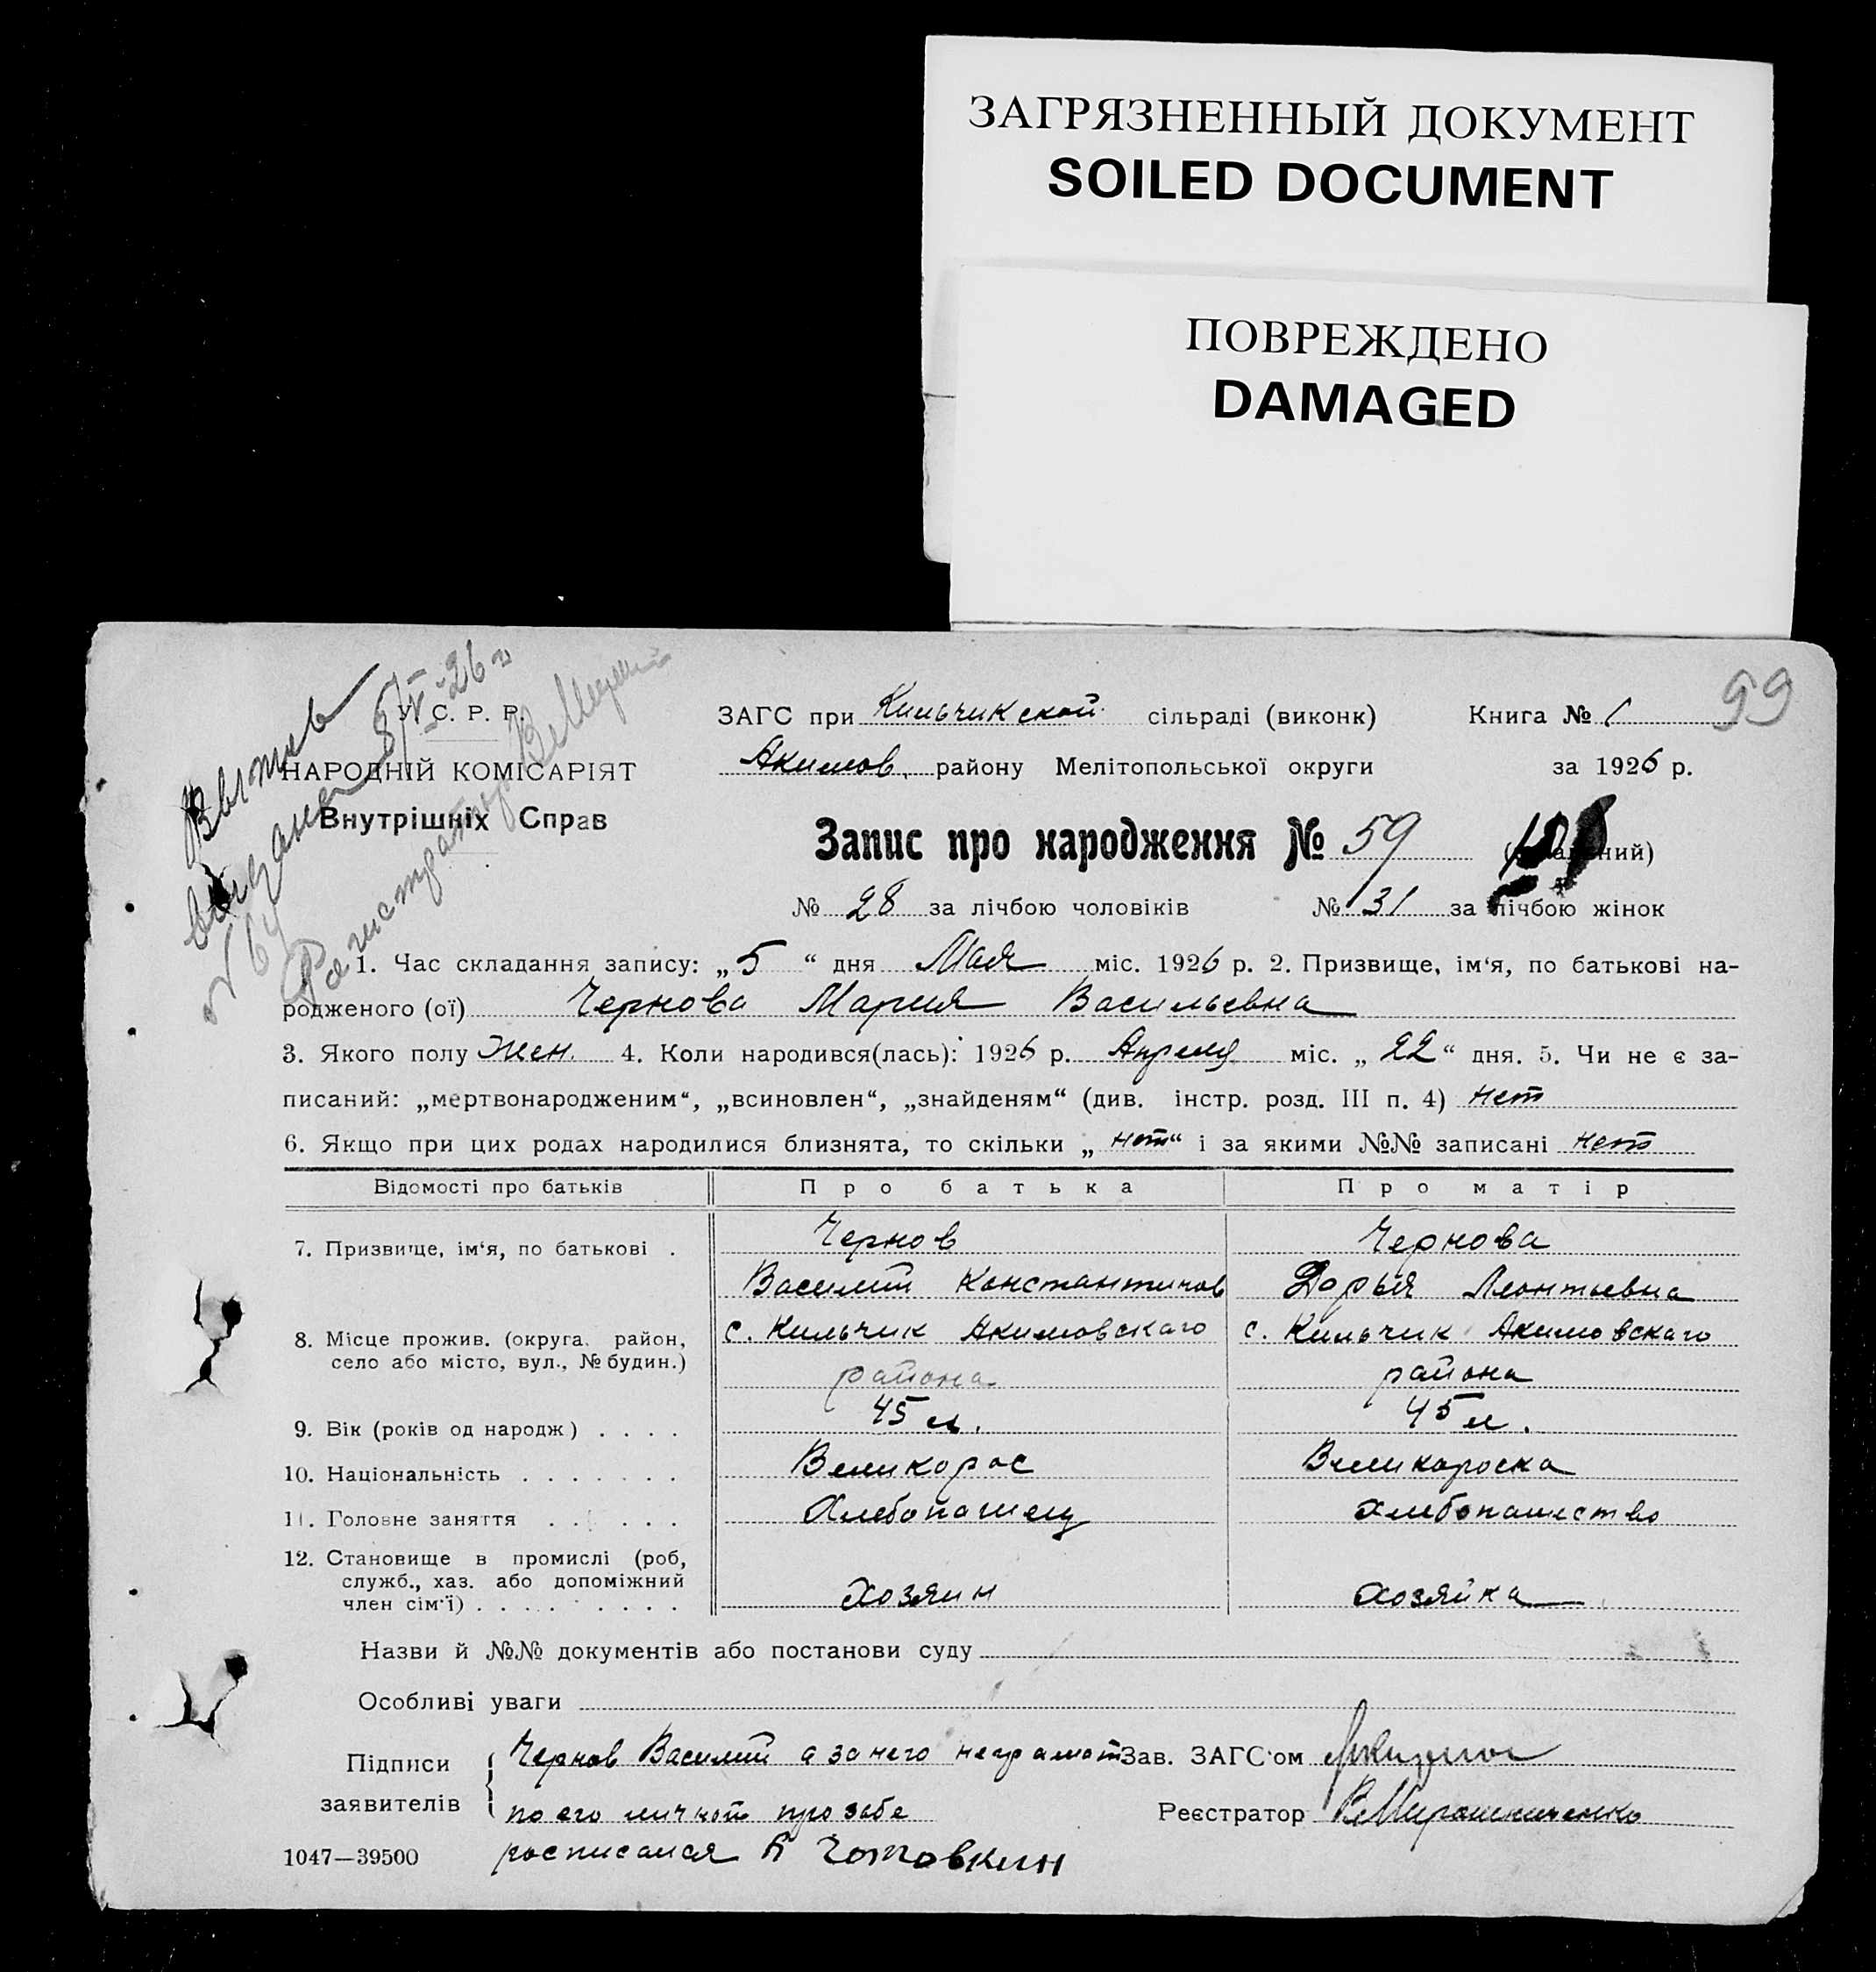 ЗАГРЯЗНЕННЫЙ ДОКУМЕНТ
SOILED DOCUMENT
ПОВРЕЖДЕНО
DAMAGED
99
У. С. Р. Р.
НАРОДНІЙ КОМІСАРІЯТ
Внутрішніх Справ
Выпись
выдана 5/V-26 г
N 64
Регистратор
ЗАГС при Кильчикской сільраді (виконк) Книга № 1
Акимов. району Мелітопольської округи за 1926 р.
Запис про народження № 59
№ 28 за лічбою чоловіків № 31 за лічбою жінок
1. Час складання запису: „5“ дня Мая міс. 1926 р. 2. Призвище, ім‘я, по батькові на-
родженого (ої) Чернова Мария Васильевна
3. Якого полу Жен. 4. Коли народився(лась): 1926 р. Апреля міс. „22“ дня. 5. Чи не є за-
писаний: „мертвонародженим“, „всиновлен“, „знайденям“ (див. інстр. розд. III п. 4) нет
6. Якщо при цих родах народилися близнята, то скільки „нет“ і за якими №№ записані нет
Відомості про батьків Про батька Про матір
7. Призвище, ім‘я, по батькові . Чернов Чернова
Василий Константинов Дарья Леонтьевна
8. Місце прожив. (округа, район, с. Кильчик Акимовскаго с. Кильчик Акимовскаго
село або місто, вул., № будин.) района района
9. Вік (років од народж) . . . . 45 л. 45 л.
10. Національність . . . . . . . Великорос Великороска
11. Головне заняття . . . . . . Хлебопашец Хлебопашество
12. Становище в промислі (роб,
служб., хаз. або допоміжний
член сім‘ї) . . . . . . . . . Хозяин Хозяйка
Назви й №№ документів або постанови суду
Особливі уваги
Підписи Чернов Василий а за него неграмот Зав. ЗАГС‘ом
заявителів по его личной прозбе Реєстратор В Мирошниченко
1047—39500 росписался